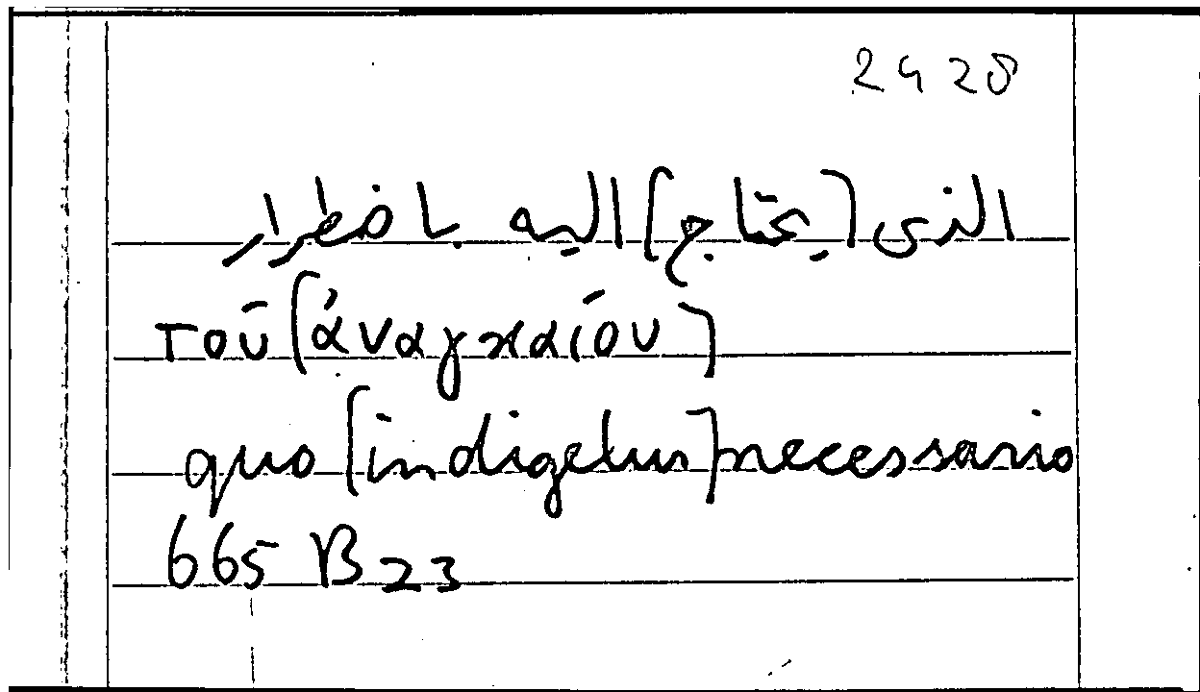 2428
الذى [يحتاج] اليه باضطرار
τοῦ [ἀναγκαίου]
quo [indigetur] necessario
665 B 23